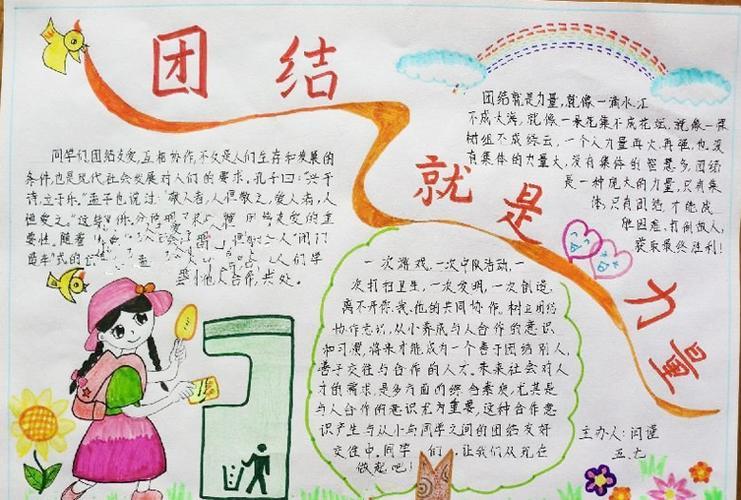 团结
就是
力量
同学们,团结友爱,互相协作,不仅是人们生存和发展的
条件,也是现代社会发展对人们的要求。孔子曰:"兴于
诗,立于乐。"孟子也说过:"敬人者,人恒敬之,爱人者,人
恒爱之。"这些
要性。随着
人合作,共处。
团结就是力量,就像一滴水汇
不成大海,就像一朵花集不成花坛,就像一棵
树组不成绿云,一个人力量再大,再强,也没
有集体的力量大,没有集体的智慧多,团结
是一种庞大的力量,只有集
体,只有团结,才能战
胜困难,打倒敌人,
获取最终胜利!
一次游戏,一次中队活动,一
次打扫卫生,一次发明,一次创造,
离不开你、我、他的共同协作。树立团结
协作意识,从小养成与人合作的意识
和习惯,将来才能成为一个善于团结别人,
善于交往与合作的人才。未来社会对人
才的需求,是多方面的综合素质,尤其是
与人合作的意识尤为重要,这种合作意
识产生与从小与同学之间的团结友好
交往中。同学们,让我们从现在
做起吧!
主办人:闫谨